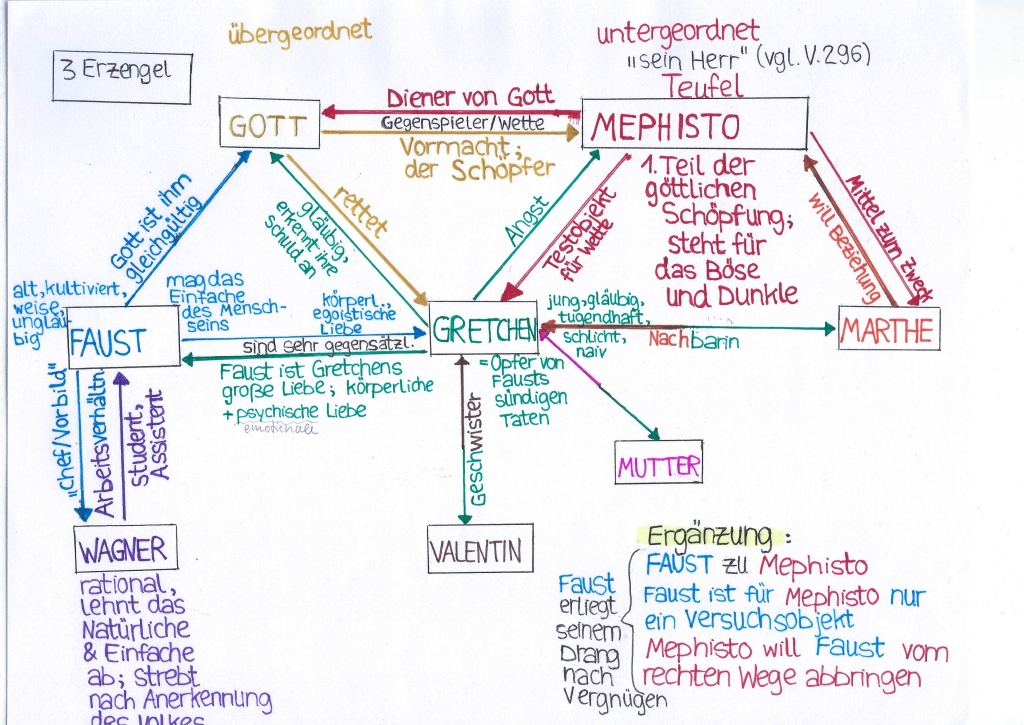 übergeordnet
untergeordnet
"sein Herr" (vgl. V.296)
Teufel
3 Erzengel
GOTT
Diener von Gott
Gegenspieler/Wette
Vormacht;
der Schöpfer
MEPHISTO
1. Teil der
göttlichen
Schöpfung;
steht für
das Böse
und Dunkle
Gott ist ihm
gleichgültig
gläubig,
erkennt ihre
Schuld an
rettet
Angst
Testobjekt
für Wette
will Beziehung
Mittel zum Zweck
alt, kultiviert,
weise,
ungläu-
big
FAUST
mag das
Einfache
des Mensch-
seins
körperl.,
egoistische
Liebe
sind sehr gegensätzl.
Faust ist Gretchens
große Liebe; körperliche
+ psychische Liebe
emotionale
GRETCHEN
jung, gläubig,
tugendhaft,
schlicht,
naiv
Nachbarin
MARTHE
= Opfer von
Fausts
sündigen
Taten
"Chef/Vorbild"
Arbeitsverhältn.
Student,
Assistent
Geschwister
MUTTER
WAGNER
rational,
lehnt das
Natürliche
& Einfache
ab; strebt
nach Anerkennung
des Volkes
VALENTIN
Ergänzung:
FAUST zu Mephisto
Faust ist für Mephisto nur
ein Versuchsobjekt
Mephisto will Faust vom
rechten Wege abbringen
Faust
erliegt
seinem
Drang
nach
Vergnügen